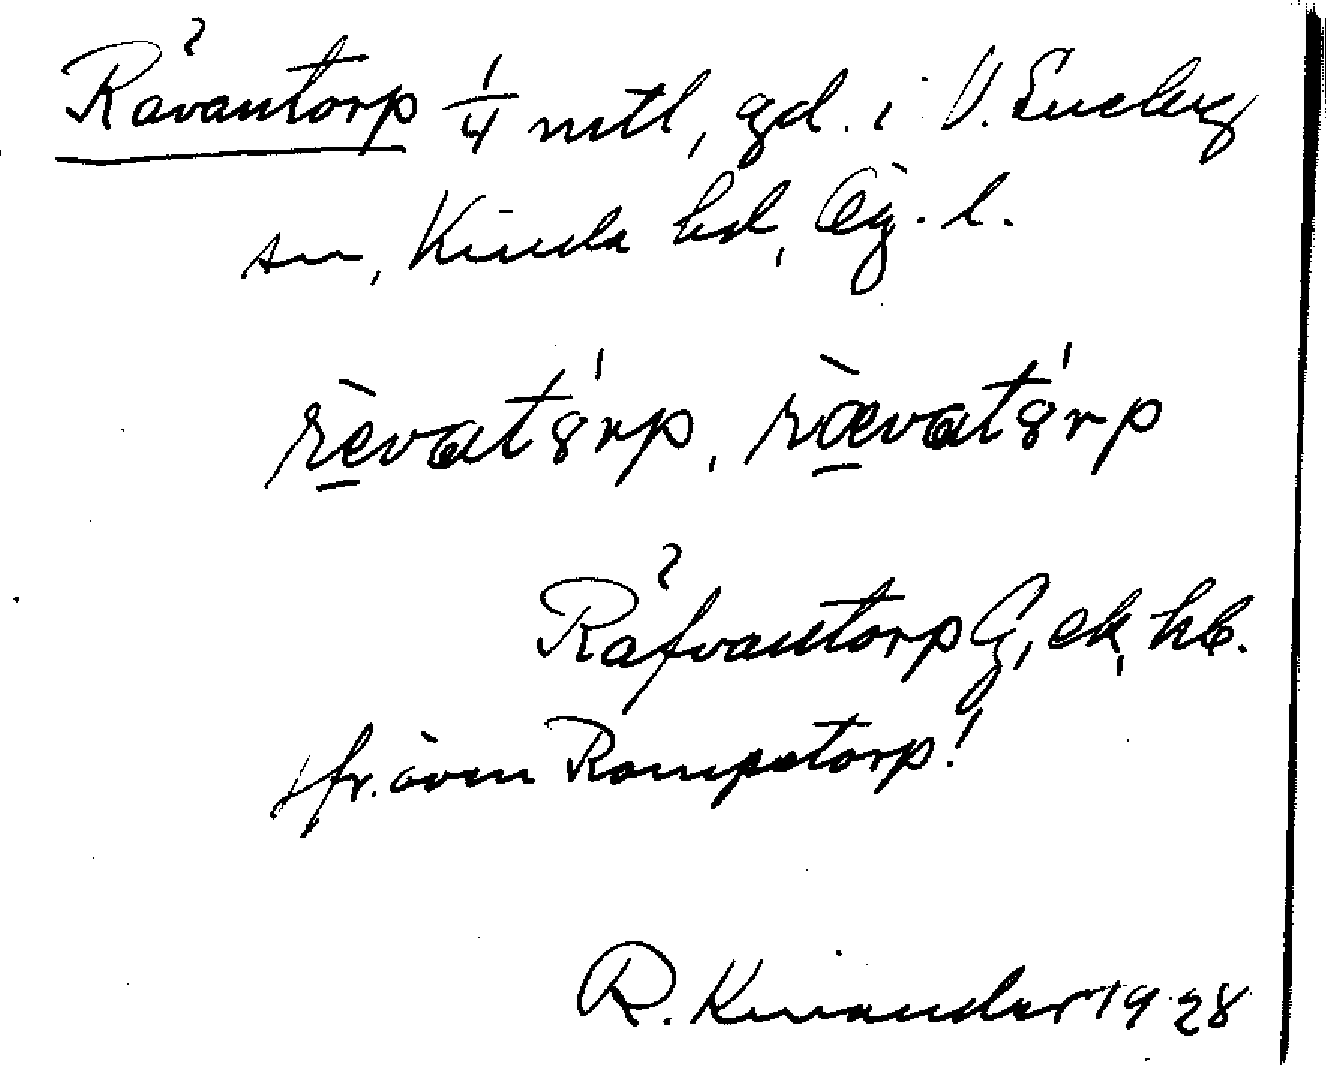 Rävantorp 1/4 mtl, gd. i V. Eneby
sn, Kinda hd, Ög. l.
rèvat8́rp, ræ̀vat8́rp
Räfvantorp G, ek, hb.
jfr. även Rampetorp!
R. Kinander 1928